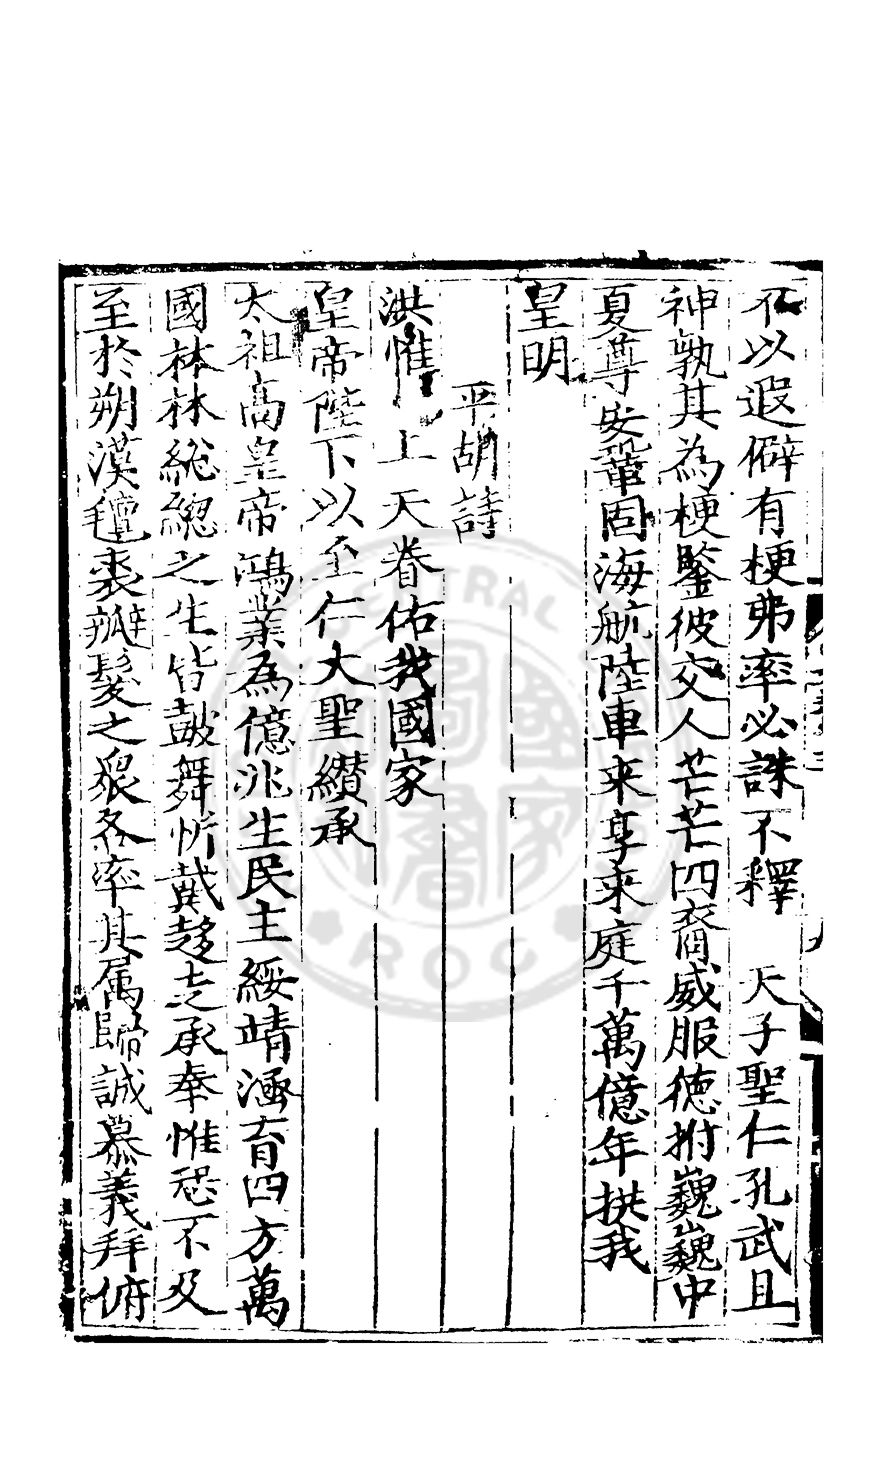 不以遐僻有梗弗率必誅不釋　天子聖仁孔武且
神孰其為梗鑒彼交人芒芒四裔威服德拊巍巍中
夏尊安鞏固海航陸車来享来庭千萬億年拱我
皇明
平胡詩
洪惟　上天眷佑我國家
皇帝陛下以至仁大聖纘承
太祖高皇帝鴻業為億兆生民主綏靖涵育四方萬
國林林総緫之生皆鼓舞忻戴趍走承奉惟恐不及
至於朔漠氊裘辮髮之衆各率其属歸誠慕義拜俯
CENTRAL
ROC
國家圖書